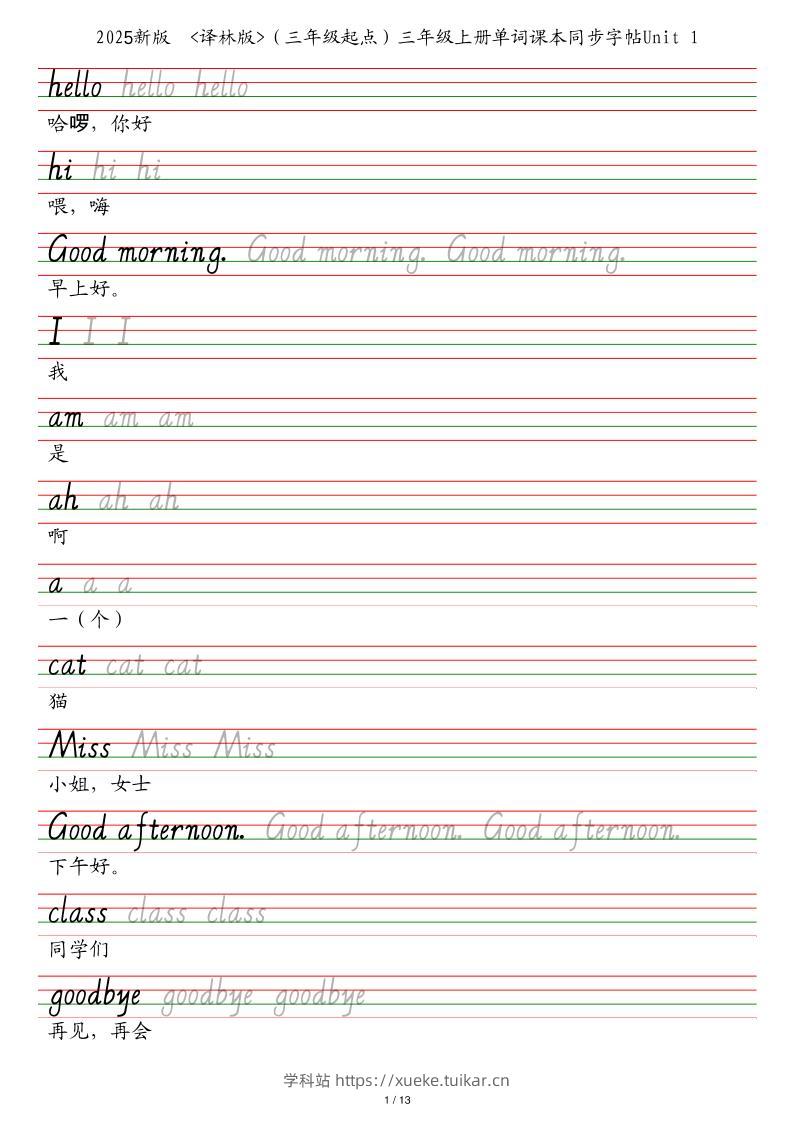 2025新版 <译林版>（三年级起点）三年级上册单词课本同步字帖Unit 1
hello hello hello
哈啰，你好
hi hi hi
喂，嗨
Good morning. Good morning. Good morning.
早上好。
I I I
我
am am am
是
ah ah ah
啊
a a a
一（个）
cat cat cat
猫
Miss Miss Miss
小姐，女士
Good afternoon. Good afternoon. Good afternoon.
下午好。
class class class
同学们
goodbye goodbye goodbye
再见，再会
学科站 https://xueke.tuikar.cn
1 / 13